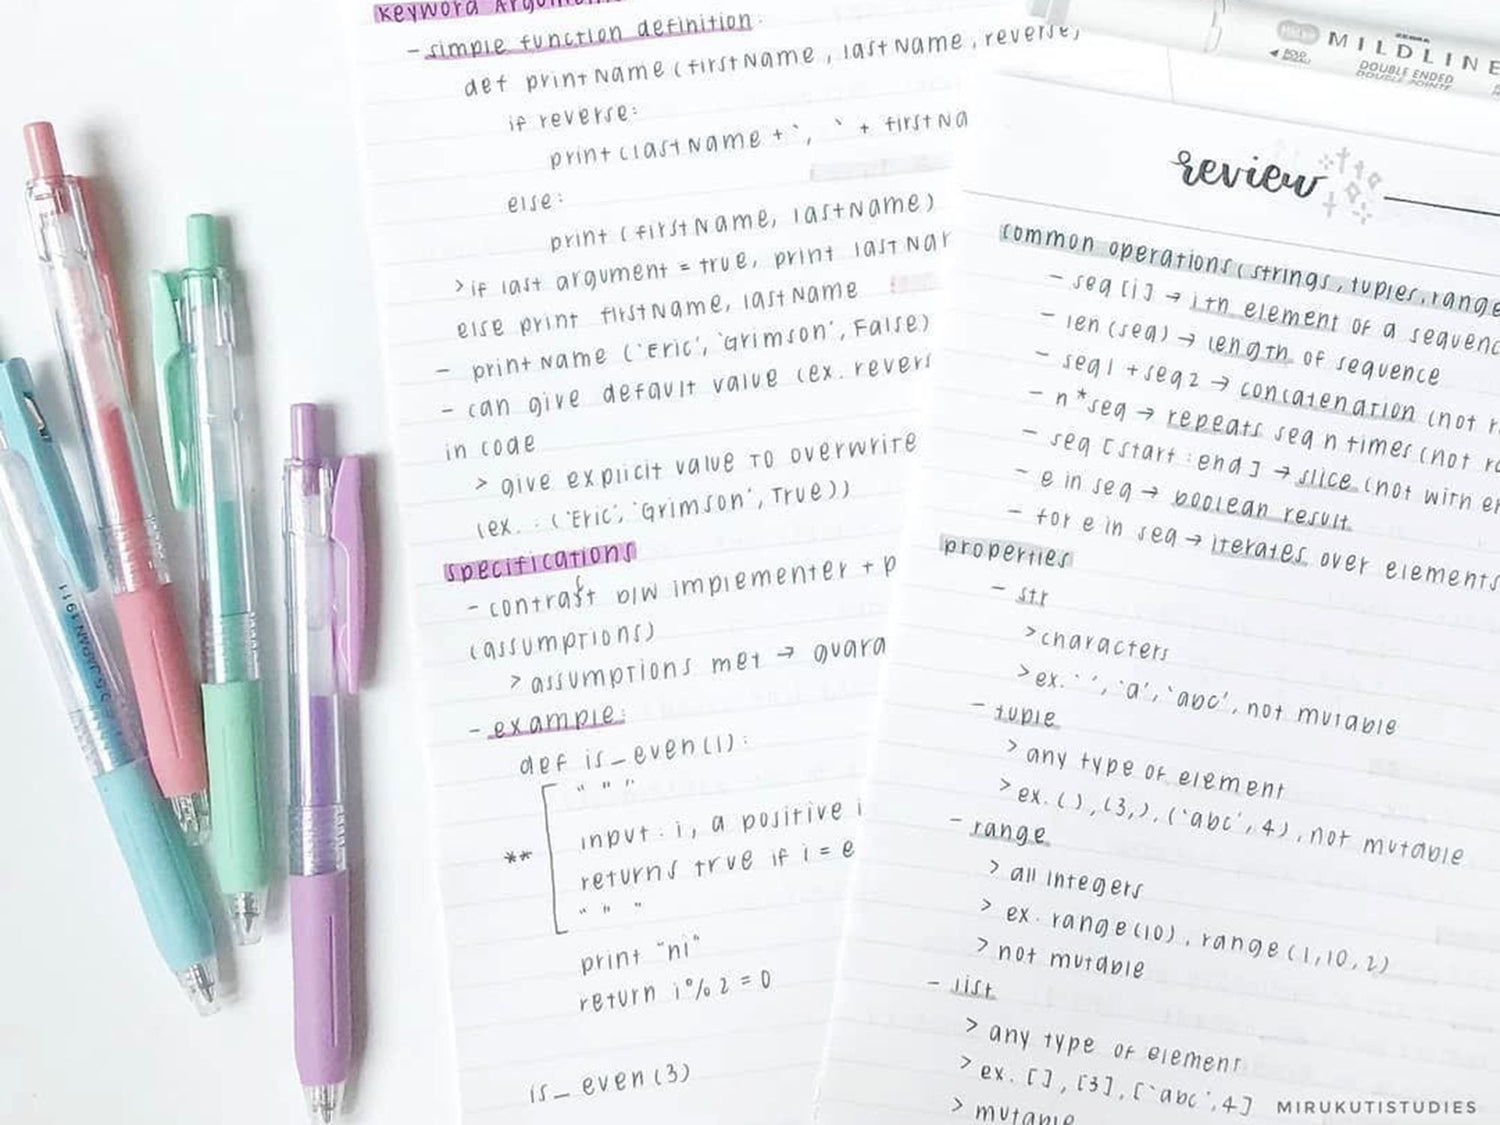 keyword
- simple function definition:
def printName (firstName, lastName, reverse)
if reverse:
print (lastName + `, ` + firstNa
else:
print (firstName, lastName)
> if last argument = true, print lastNa
else print firstName, lastName
- printName (`Eric', `Grimson', False)
- can give default value (ex. revers
in code
> give explicit value to overwrite
(ex. : (`Eric', `Grimson', True))
specifications
- contract b/w implementer + p
(assumptions)
> assumptions met → guara
- example:
def is_even(i):
" " "
input: i, a positive i
** returns true if i = e
" " "
print "ni"
return i % 2 = 0
is_even (3)
MILDLINE
DOUBLE ENDED
review
common operations (strings, tuples, range
- seq [i] → ith element of a sequenc
- len (seq) → length of sequence
- seq1 + seq2 → concatenation (not r
- n*seq → repeats seq n times (not ra
- seq [start:end] → slice (not with e
- e in seq → boolean result
- for e in seq → iterates over elements
properties
- str
> characters
> ex. ` ', `a', `abc', not mutable
- tuple
> any type of element
> ex. (), (3,), (`abc', 4), not mutable
- range
> all integers
> ex. range (10), range (1,10,2)
> not mutable
- list
> any type of element
> ex. [], [3], [`abc', 4]
> mutable
MIRUKUTISTUDIES